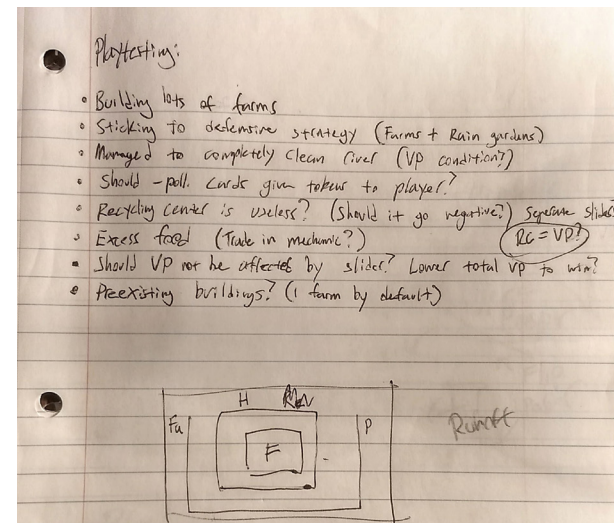 Playtesting:
• Building lots of farms
• Sticking to defensive strategy (Farms + Rain gardens)
• Managed to completely clean river (VP condition?)
• Should -poll. cards give tokens to player?
• Recycling center is useless? (Should it go negative?) Seperate slider?
• Excess food (Trade in mechanic?) RC = VP?
• Should VP not be affected by slider? Lower total VP to win?
• Preexisting buildings? (1 farm by default)
H
Fu P
F